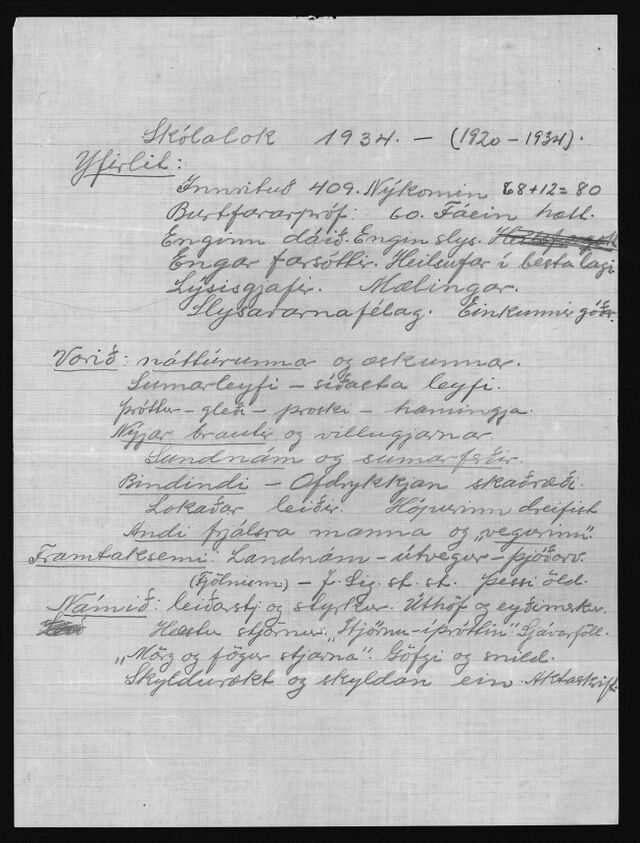 Skólalok 1934. – (1920 – 1934).
Yfirlit:
Innrituð 409. Nýkomin 68 + 12 = 80
Burtfararpróf: 60. Fáein hætt.
Enginn dáið. Engin slys.
Engar farsóttir. Heilsufar í besta lagi
Lýsisgjafir. Mælingar.
Slysavarnafélag. Einkunnir góðar.
Vorið: náttúrunnar og æskunnar.
Sumarleyfi – síðasta leyfi.
Þróttur – gleði – þroski – hamingja.
Nýjar brautir og villugjarnar.
Sundnám og sumarferðir.
Bindindi – Ofdrykkjan skaðræði.
Lokaðar leiðir. Hópurinn dreifist
Andi frjálsra manna og „vegurinn".
Framtaksemi. Landnám – útvegur – þjóðarv.
(Fjölnism) – f. Sig. st. st. þessi öld.
Námið: leiðarstj og styrkur. Úthöf og eyðimerkur.
Hæstu stjörnur. „Stjörnu-íþróttin". Sjávarföll.
„Mörg og fögur stjarna". Göfgi og snild.
Skyldurækt og skyldan ein. Aktaskrift